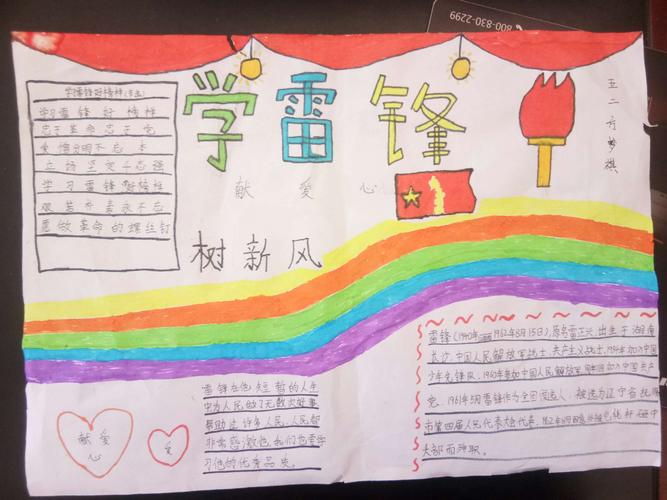 800-830-2299
学雷锋
献 爱 心
树新风
五二方梦祺
学雷锋好榜样
学习雷锋好榜样
忠于革命忠于党
爱憎分明不忘本
立场坚定斗志强
学习雷锋好榜样
艰苦朴素永不忘
愿做革命的螺丝钉
献爱
心
爱
雷锋在他短暂的人生
中为人民做了无数次好事
帮助过许多人民,人民都
非常感激他,我们也要学
习他的优秀品质。
雷锋(1940年 1962年8月15日),原名雷正兴,出生于湖南
长沙,中国人民解放军战士,共产主义战士,1954年加入中国
少年先锋队,1960年参加中国人民解放军,同年11月加入中国共产
党。1961年5月雷锋作为全团候选人,被选为辽宁省抚顺
市第四届人民代表大会代表,1962年8月 被 砸中
头部而殉职。